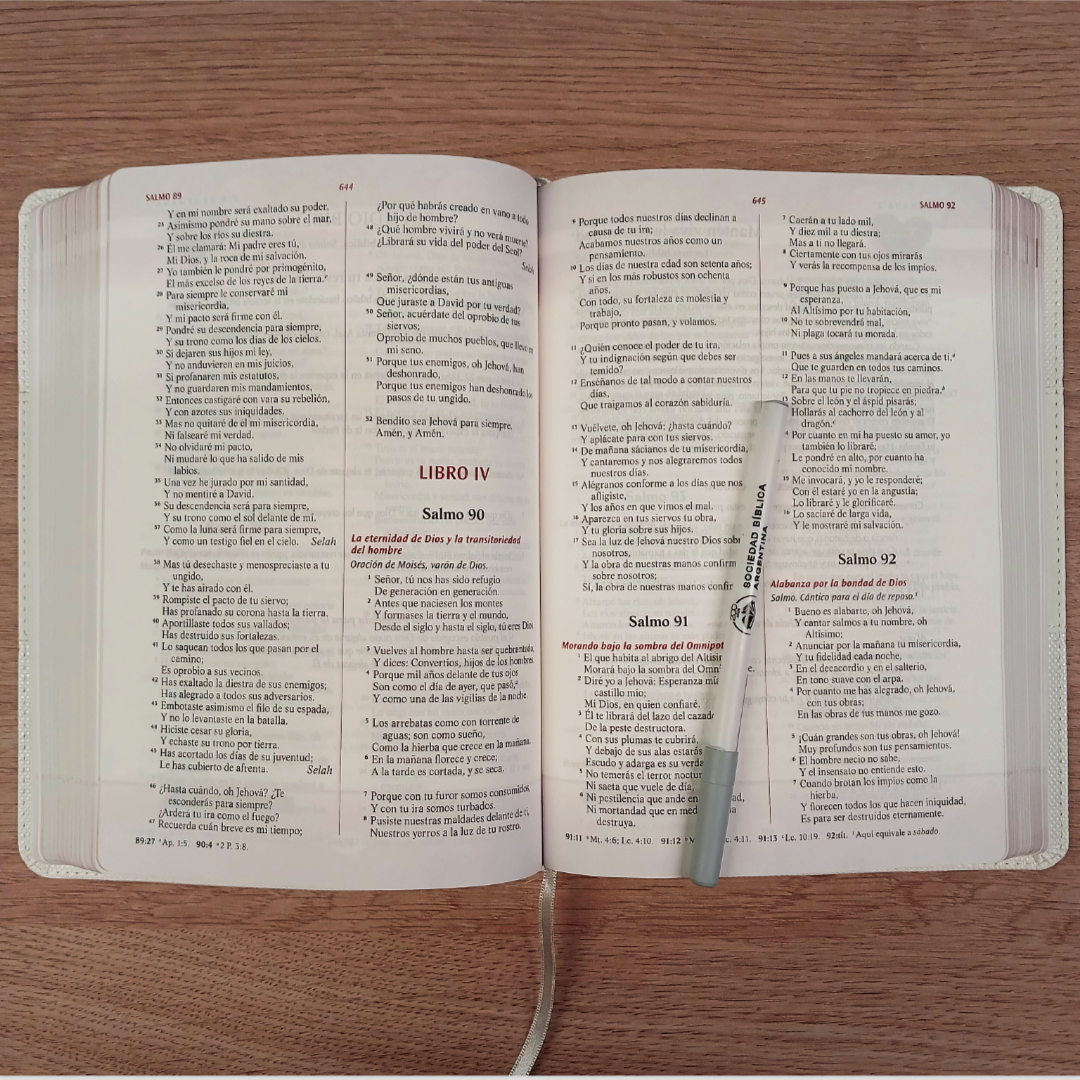 SALMO 89
644
Y en mi nombre será exaltado su poder.
25 Asimismo pondré su mano sobre el mar,
Y sobre los ríos su diestra.
26 Él me clamará: Mi padre eres tú,
Mi Dios, y la roca de mi salvación.
27 Yo también le pondré por primogénito,
El más excelso de los reyes de la tierra.
28 Para siempre le conservaré mi
misericordia,
Y mi pacto será firme con él.
29 Pondré su descendencia para siempre,
Y su trono como los días de los cielos.
30 Si dejaren sus hijos mi ley,
Y no anduvieren en mis juicios,
31 Si profanaren mis estatutos,
Y no guardaren mis mandamientos,
32 Entonces castigaré con vara su rebelión,
Y con azotes sus iniquidades.
33 Mas no quitaré de él mi misericordia,
Ni falsearé mi verdad.
34 No olvidaré mi pacto,
Ni mudaré lo que ha salido de mis
labios.
35 Una vez he jurado por mi santidad,
Y no mentiré a David.
36 Su descendencia será para siempre,
Y su trono como el sol delante de mí.
37 Como la luna será firme para siempre,
Y como un testigo fiel en el cielo. Selah
38 Mas tú desechaste y menospreciaste a tu
ungido,
Y te has airado con él.
39 Rompiste el pacto de tu siervo;
Has profanado su corona hasta la tierra.
40 Aportillaste todos sus vallados;
Has destruido sus fortalezas.
41 Lo saquean todos los que pasan por el
camino;
Es oprobio a sus vecinos.
42 Has exaltado la diestra de sus enemigos;
Has alegrado a todos sus adversarios.
43 Embotaste asimismo el filo de su espada,
Y no lo levantaste en la batalla.
44 Hiciste cesar su gloria,
Y echaste su trono por tierra.
45 Has acortado los días de su juventud;
Le has cubierto de afrenta. Selah
46 ¿Hasta cuándo, oh Jehová? ¿Te
esconderás para siempre?
¿Arderá tu ira como el fuego?
47 Recuerda cuán breve es mi tiempo;
¿Por qué habrás creado en vano a todo
hijo de hombre?
48 ¿Qué hombre vivirá y no verá muerte?
¿Librará su vida del poder del Seol?
Selah
49 Señor, ¿dónde están tus antiguas
misericordias,
Que juraste a David por tu verdad?
50 Señor, acuérdate del oprobio de tus
siervos;
Oprobio de muchos pueblos, que llevo en
mi seno.
51 Porque tus enemigos, oh Jehová, han
deshonrado,
Porque tus enemigos han deshonrado los
pasos de tu ungido.
52 Bendito sea Jehová para siempre.
Amén, y Amén.
LIBRO IV
Salmo 90
La eternidad de Dios y la transitoriedad
del hombre
Oración de Moisés, varón de Dios.
1 Señor, tú nos has sido refugio
De generación en generación.
2 Antes que naciesen los montes
Y formases la tierra y el mundo,
Desde el siglo y hasta el siglo, tú eres Dios.
3 Vuelves al hombre hasta ser quebrantado,
Y dices: Convertíos, hijos de los hombres.
4 Porque mil años delante de tus ojos
Son como el día de ayer, que pasó,
Y como una de las vigilias de la noche.
5 Los arrebatas como con torrente de
aguas; son como sueño,
Como la hierba que crece en la mañana.
6 En la mañana florece y crece;
A la tarde es cortada, y se seca.
7 Porque con tu furor somos consumidos,
Y con tu ira somos turbados.
8 Pusiste nuestras maldades delante de ti,
Nuestros yerros a la luz de tu rostro.
89:27 Ap. 1:5. 90:4 2 P. 3:8.
645
SALMO 92
9 Porque todos nuestros días declinan a
causa de tu ira;
Acabamos nuestros años como un
pensamiento.
10 Los días de nuestra edad son setenta años;
Y si en los más robustos son ochenta
años,
Con todo, su fortaleza es molestia y
trabajo,
Porque pronto pasan, y volamos.
11 ¿Quién conoce el poder de tu ira,
Y tu indignación según que debes ser
temido?
12 Enséñanos de tal modo a contar nuestros
días,
Que traigamos al corazón sabiduría.
13 Vuélvete, oh Jehová; ¿hasta cuándo?
Y aplácate para con tus siervos.
14 De mañana sácianos de tu misericordia,
Y cantaremos y nos alegraremos todos
nuestros días.
15 Alégranos conforme a los días que nos
afligiste,
Y los años en que vimos el mal.
16 Aparezca en tus siervos tu obra,
Y tu gloria sobre sus hijos.
17 Sea la luz de Jehová nuestro Dios sob
nosotros,
Y la obra de nuestras manos confirm
sobre nosotros;
Sí, la obra de nuestras manos confir
Salmo 91
Morando bajo la sombra del Omnipot
1 El que habita al abrigo del Altísi
Morará bajo la sombra del Omn e.
2 Diré yo a Jehová: Esperanza mí
castillo mío;
Mi Dios, en quien confiaré.
3 Él te librará del lazo del cazado
De la peste destructora.
4 Con sus plumas te cubrirá,
Y debajo de sus alas estarás
Escudo y adarga es su verda
5 No temerás el terror noctur
Ni saeta que vuele de día,
6 Ni pestilencia que ande en ad,
Ni mortandad que en med
destruya.
7 Caerán a tu lado mil,
Y diez mil a tu diestra;
Mas a ti no llegará.
8 Ciertamente con tus ojos mirarás
Y verás la recompensa de los impíos.
9 Porque has puesto a Jehová, que es mi
esperanza,
Al Altísimo por tu habitación,
10 No te sobrevendrá mal,
Ni plaga tocará tu morada.
11 Pues a sus ángeles mandará acerca de ti,
Que te guarden en todos tus caminos.
12 En las manos te llevarán,
Para que tu pie no tropiece en piedra.
13 Sobre el león y el áspid pisarás;
Hollarás al cachorro del león y al
dragón.
Por cuanto en mí ha puesto su amor, yo
también lo libraré;
Le pondré en alto, por cuanto ha
conocido mi nombre.
15 Me invocará, y yo le responderé;
Con él estaré yo en la angustia;
Lo libraré y le glorificaré.
16 Lo saciaré de larga vida,
Y le mostraré mi salvación.
Salmo 92
Alabanza por la bondad de Dios
Salmo. Cántico para el día de reposo.
1 Bueno es alabarte, oh Jehová,
Y cantar salmos a tu nombre, oh
Altísimo;
2 Anunciar por la mañana tu misericordia,
Y tu fidelidad cada noche,
3 En el decacordio y en el salterio,
En tono suave con el arpa.
4 Por cuanto me has alegrado, oh Jehová,
con tus obras;
En las obras de tus manos me gozo.
5 ¡Cuán grandes son tus obras, oh Jehová!
Muy profundos son tus pensamientos.
6 El hombre necio no sabe,
Y el insensato no entiende esto.
7 Cuando brotan los impíos como la
hierba,
Y florecen todos los que hacen iniquidad,
Es para ser destruidos eternamente.
91:11 Mt. 4:6; Lc. 4:10. 91:12 c. 4:11. 91:13 Lc. 10:19. 92:tít. Aquí equivale a sábado.
SOCIEDAD BÍBLICA
ARGENTINA